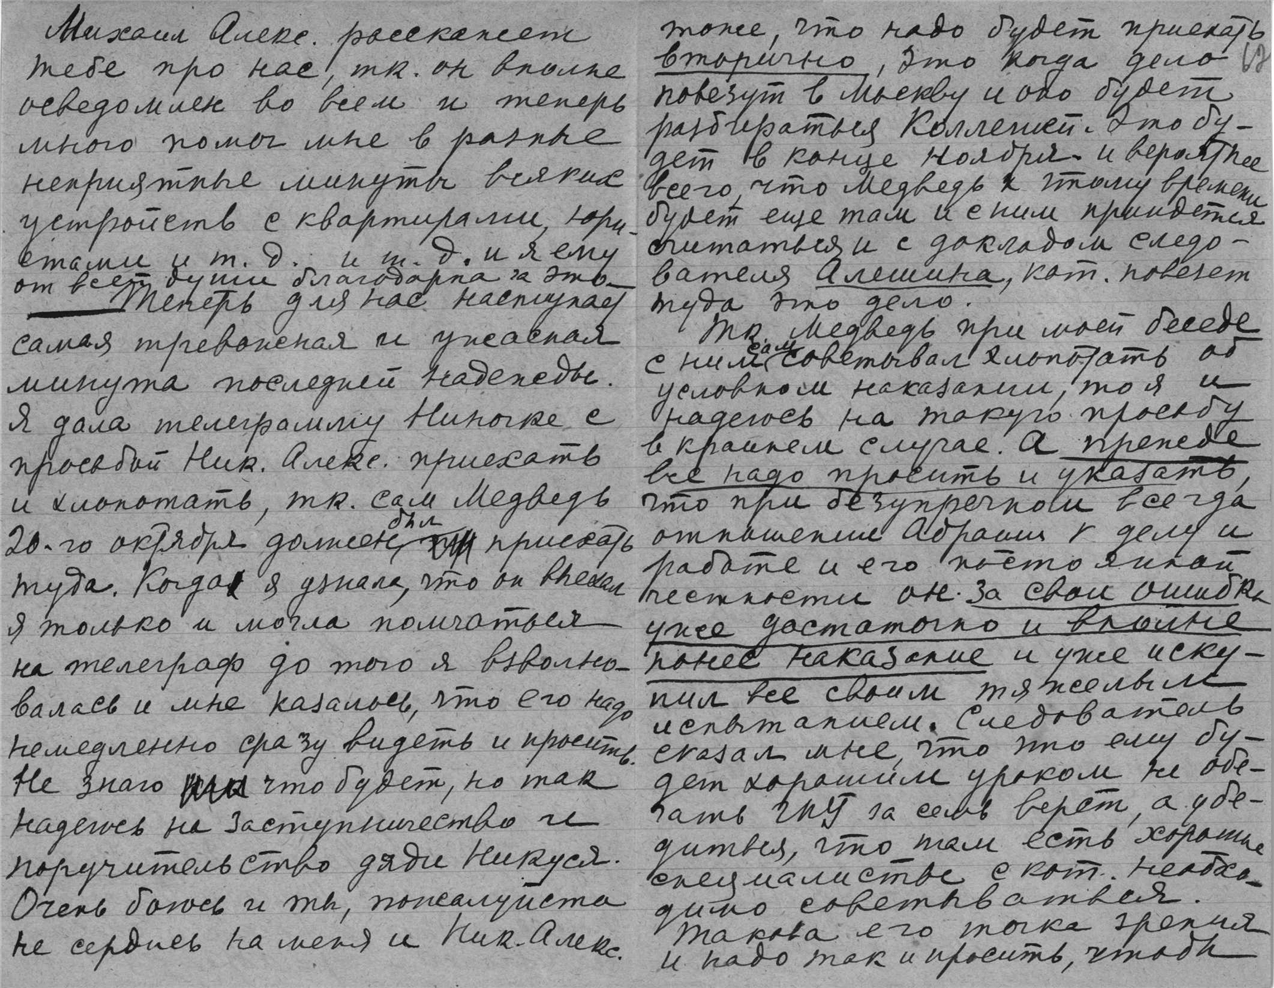 Михаил Алекс. расскажет
тебе про нас, тк. он вполне
осведомлен во всем и теперь
много помог мне в разные
неприятные минуты всяких
устройств с квартирами, юри-
стами и т. д. и т. д. и я ему
от всей души благодарна за это.
Теперь для нас наступает
самая тревожная и ужасная
минута последней надежды.
Я дала телеграмму Ниночке с
просьбой Ник. Алекс. приехать
и хлопотать, тк. сам Медведь
20-го октября должен был приехать
туда. Когда я узнала, что он выехал
я только и могла помчаться
на телеграф до того я взволно-
валась и мне казалось, что его надо
немедленно сразу видеть и просить.
Не знаю что будет, но так
надеюсь на заступничество и
поручительство дяди Никуся.
Очень боюсь и ты, пожалуйста
не сердись на меня и Ник. Алекс.
тоже, что надо будет приехать
вторично, это когда дело
повезут в Москву и оно будет
разбираться Коллегией. Это бу-
дет в конце ноября и вероятнее
всего, что Медведь к этому времени
будет еще там и с ним придется
считаться и с докладом следо-
вателя Алешина, кот. повезет
туда это дело.
Тк. Медведь при моей беседе
с ним сам советывал хлопотать об
условном наказании, то я и
надеюсь на такую просьбу
в крайнем случае. А прежде
все надо просить и указать,
что при безупречном всегда
отношении Абраши к делу и
работе и его постоянной
честности он за свои ошибки
уже достаточно и вполне
понес наказание и уже иску-
пил все своим тяжелым
испытанием. Следователь
сказал мне, что это ему бу-
дет хорошим уроком не обе-
гать ГПУ за семь верст, а убе-
диться, что там есть хорошие
специалисты с кот. необхо-
димо советываться.
Такова его точка зрения
и надо так и просить, чтобы